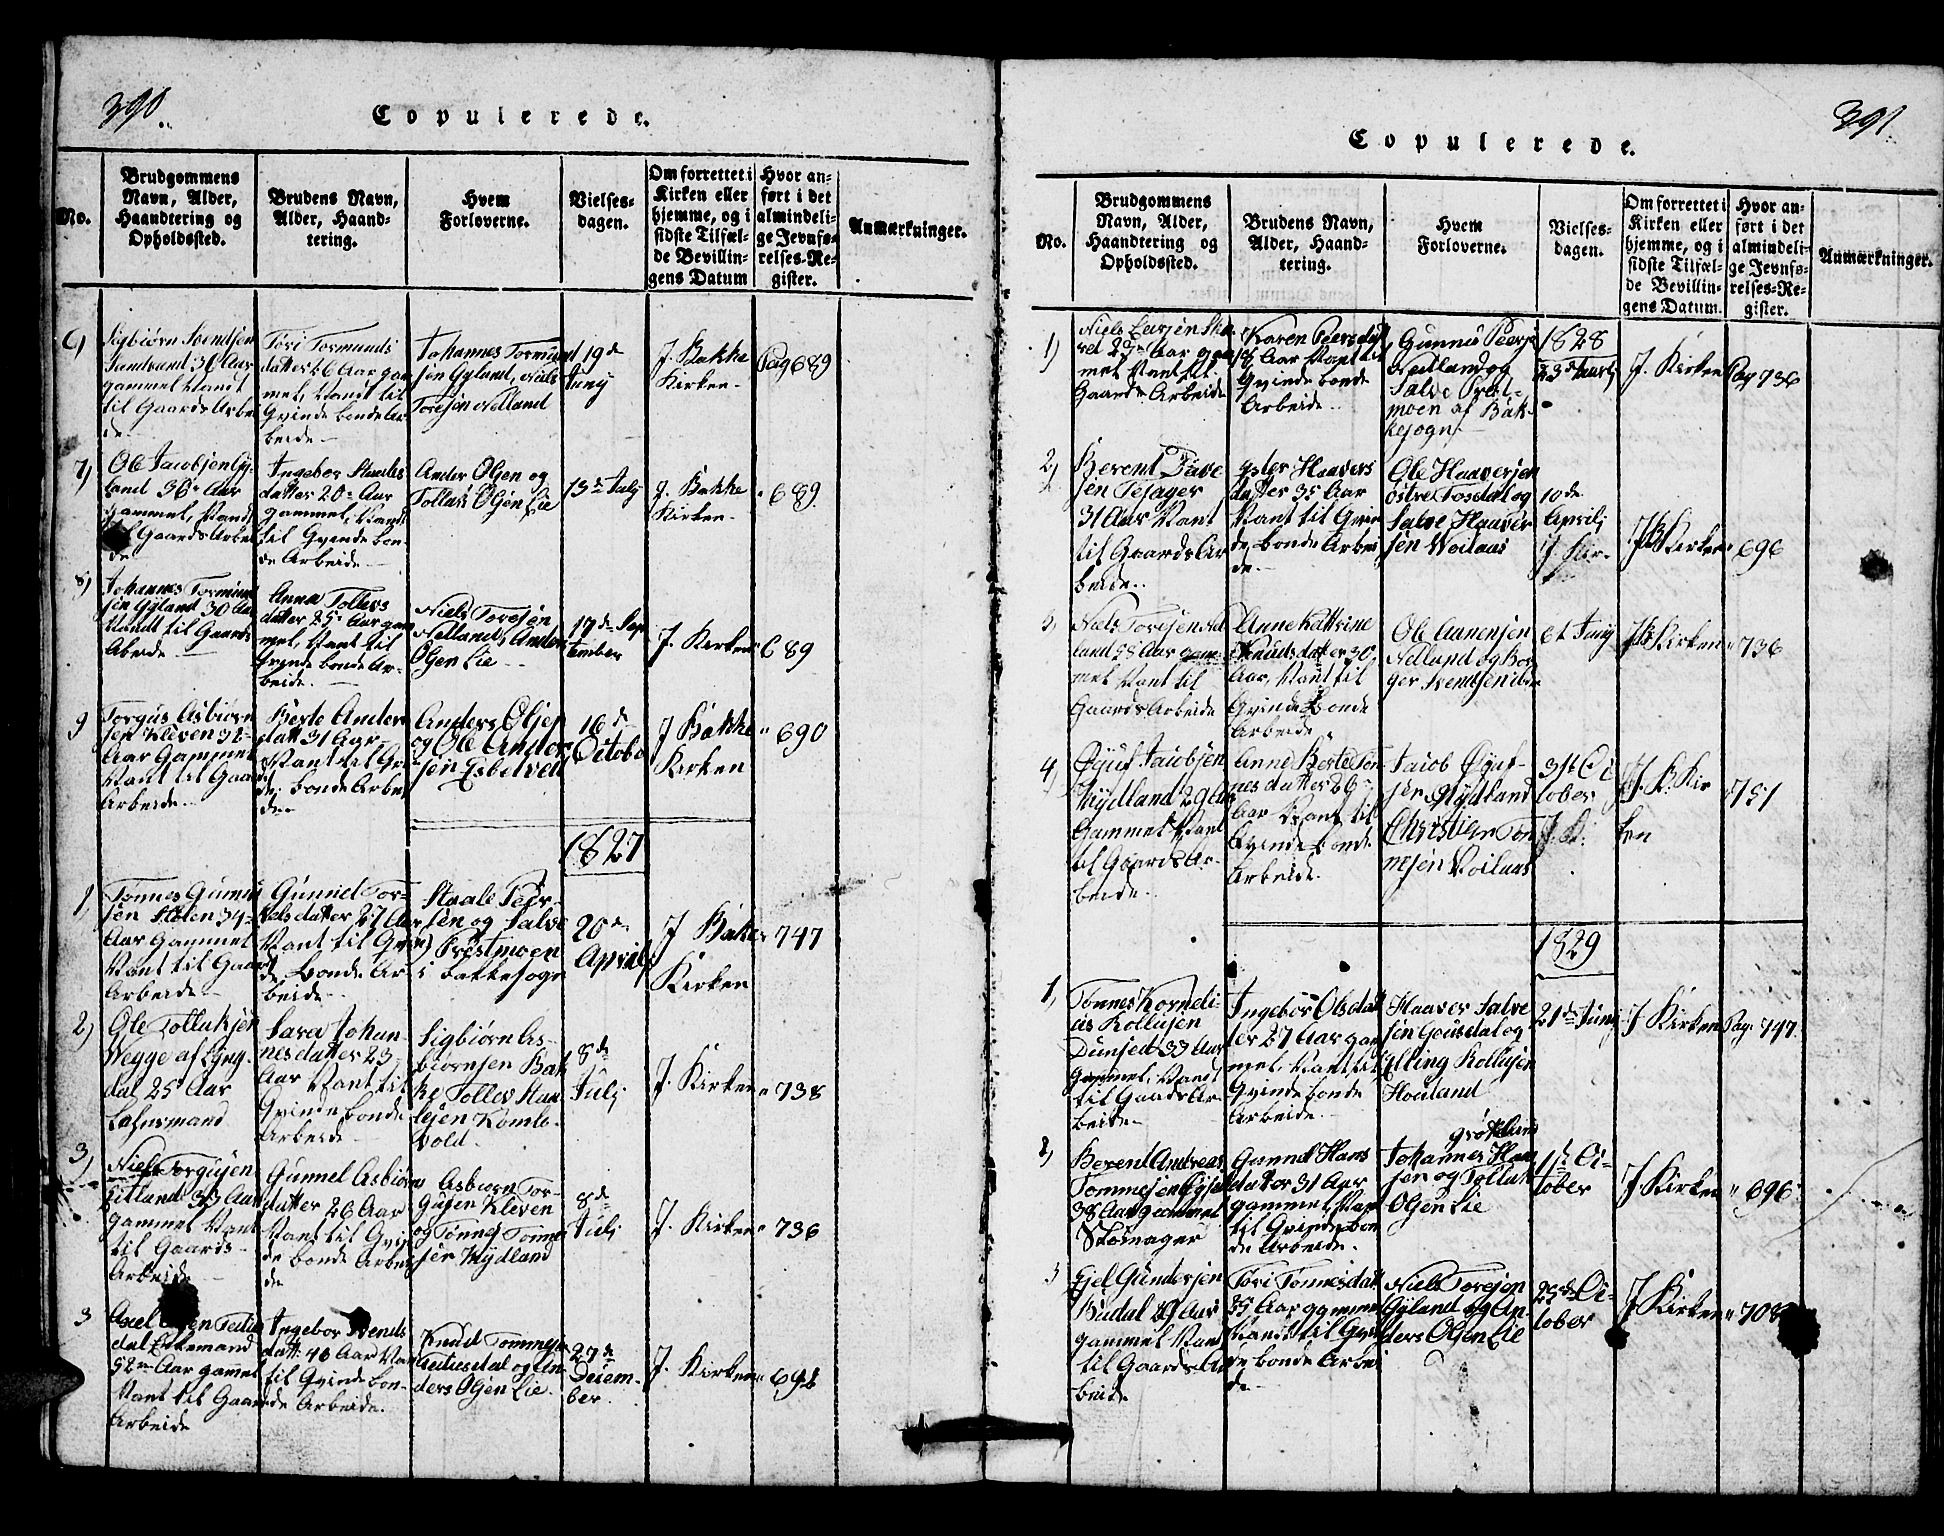 390.
Copulerede.
No.
Brudgommens
Navn, Alder,
Haandtering og
Opholdssted.
Brudens Navn,
Alder, Haand-
tering.
Hvem
Forloverne.
Vielses-
dagen.
Om forrettet i
Kirken eller
hjemme, og i
sidste Tilfæl-
de Bevillin-
gens Datum
Hvor an-
ført i det
almindeli-
ge Jevnfø-
relses-Re-
gister.
Anmærkninger.
Sigbiørn Svendsen
31 Aar
gammel Vandt
til Gaards Arbei
de
Tori Tormunds
datter 26 Aar gam
mel, Vandt til
Qvinde bonde Ar
beide
Johannes Tormund
sen Gyland, Niels
Toresen Nelland
19de
Juny
J Bakke
Kirken
Pag 689
7)
Ole Jacobsen Gy-
land 36 Aar
gammel, Vandt
til Gaards Arbei
de
Ingebor
datter 20 Aar
gammel, Vandt
til Qvinde bon-
de Arbeide
Ander Olsen og
Tollak Olsen Lie
13de July
J. Bakke
Kirken
" 689.
8)
Johannes Tormund
sen Gyland 30 Aar
Vandt til Gaards
Abeide
Anna Tollevs
datter 25 Aar gam
mel, Vant til
Qvinde bonde Ar-
beide.
Niels Toresen
Nelland, Anders
Olsen Lie
17de Sep
tember
J. Kirken
" 689
9
Torgus Asbiørn
sen Kleven 32
Aar Gammel
Vant til Gaards
Arbeide
Berte Anders
datt 31 Aar
Vant til Qvin
de bonde Arbei
de
Anders Olsen
og Ole Anders
sen
16de
October
J Bakke
Kirken
" 690
1827
1,
Tønnes Gunnu
sen 34
Aar Gammel
Vant til Gaards
Arbeide
Gunnel Tor-
datter 27 Aar
Vant til Qvin
de bonde Ar-
beide
Staale Peer-
sen og Salve
Præstmoen
i Bakkesogn
20de
April
J Bakke
Kirken
" 747
2)
Ole Tollaksen
Vegge af Lyng-
dal 25 Aar
Lensmand
Sara Johan
nesdatter 23
Aar Vant til
Qvinde bonde
Arbeide
Sigbiørn As-
biørnsen Bak
ke Tollev
8de
July
J. Kirken
" 738
3)
Niels Torgusen
33 Aar
gammel Vant
til Gaards-
Arbeide
Gunnel Asbiørn
datter 26 Aar
Vant til Qvin
de bonde Arbei
de
Asbiørn Tor-
gusen Kleven
og Tønnes Tønne
sen Mydland
8de
July
J. Kirken
" 736
3
Axel Olsen
dal Enkemand
52 Aar gamel
Vant til Gaards
Arbeide
Ingebor Svends
datt. 40 Aar Van
til Qvinde bon-
de Arbeide.
Knud Tønnesen
og An-
ders Olsen Lie
27de
Decem-
ber.
J. Kirken
" 692
391.
Copulerede.
No.
Brudgommens
Navn, Alder,
Haandtering og
Opholdssted.
Brudens Navn,
Alder, Haand-
tering.
Hvem
Forloverne.
Vielses-
dagen.
Om forrettet i
Kirken eller
hjemme, og i
sidste Tilfæl-
de Bevillin-
gens Datum.
Hvor an-
ført i det
almindeli-
ge Jevnfø-
relses-Re-
gister.
Anmærkninger.
1)
Niels Larsen
23 Aar gam
mel Vant til
Gaards Arbeide
Karen Peersdat
18 Aar Vant til
Qvinde bonde
Arbeide
Gunnu Peers
Nedland og
Salve Præst-
moen af Bak-
kesogn
1828
J. Kirken
Pag 736
2)
Berent Tave
sen
31 Aar Vant
til Gaards Ar
beide
Haavers
datter 35 Aar
Vant til Qvin
de bonde Arbei
de
Ole Haaversen
østre Tosdal og
Salve Haaver
sen Voilaas
10de
April
J B Kirken
" 696
3,
Niels Toresen Ned
land 58 Aar gam-
mel Vant til
Gaards Arbeide
Anne Kattrine
Knuds datter 30
Aar, Vant til
Qvinde Bonde
Arbeide
Ole Aanensen
Nelland og Bor
ger Svendsen
6t Juny
J B Kirken
" 736
4)
Øyuf Jacobsen
Mydland 29 Aar
Gammel Vant
til Gaards Ar-
beide
Anne Berte Tøn
nesdatter 26
Aar Vant til
Qvinde bonde
Arbeide.
Jacob Øyuf-
sen Mydland
Christien Tøn
nesen Voilaas
31t Oc
tober
J. B. Kir
ken
" 751
1829
1,
Tønnes Korneli-
us Rollufsen
Dunsed 33 Aar
Gammel, Vandt
til Gaards Ar-
beide
Ingebor Olsdat
ter 27 Aar gam
mel, Vant til
Qvinde bonde
Arbeide
Haaver Salve
sen Gousdal og
Elling Rollufsen
Houland
21de Juny
J Kirken
Pag. 747.
2)
Berent Andreas
Tønnesen
38 Aar gammel
Skomager
Gunnel Hans
datter 31 Aar
gammel Vant
til Qvinde bon
de Arbeide.
Johannes Han
sen og Tollak
Olsen Lie
11t Oc-
tober
J Kirken
" 696
3
Ejel Gundersen
Budal 29 Aar
gammel Vant
til Gaards Ar
beide
Tori Tønnesdatt
25 Aar gammel
Vandt til Qvin
de bonde Arbei
de
Niels Toresen
Gyland og An-
ders Olsen Lie
25de Oc-
tober
J Kirken
" 708